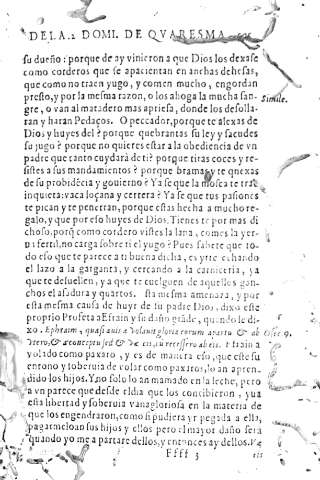 DE LA .2 DOMI. DE QVARESMA
su dueño: porque de ay vinieron a que Dios los dexase
como corderos que se apacientan en anchas dehesas,
que como no traen yugo, y comen mucho, engordan
presto, y por la mesma razon, o los ahoga la mucha san-
gre, o van al matadero mas apriesa, donde los desolla- Simile.
ran y haran Pedaços. O peccador, porque te alexas de
Dios y huyes del? porque quebrantas su ley y sacudes
su jugo? porque no quieres estar a la obediencia de vn
padre que tanto cuydará de ti? porque tiras coces y re-
sistes a sus mandamientos? porque bramas y te quexas
de su probidēcia y gouierno? Ya se que la mosca te trae
inquieta: vaca loçana y cerrera? Ya se que tus pasiones
te pican y te penetran, porque estas hecha a mucho re-
galo, y que por eso huyes de Dios. Tienes te por mas di
choso, porq̃ como cordero vistes la lana, comes la yer-
ua fertil, no carga sobre ti el yugo? Pues sabete que to-
do eso que te parece a ti buena dicha, es yrte echando
el lazo a la garganta, y cercando a la carniceria, ya
que te desuellen, y a que te cuelguen de aquellos gan-
chos el asadura y quartos. sta mesma amenaza, y por
esta mesma causa de huyr de su padre Dios, dixo este
proprio Profeta a Efrain y su daño grāde, quando le di-
xo. Ephraim, quasi auis auolauit gloria eorum a partu & ab Osee. 9.
vtero, & a conceptu sed & væ eis, cũ recessero ab eis. Efrain a
volado como paxaro, y es de manera eso, que este su
entono y soberuia de volar como paxaros, lo an apren-
dido los hijos. Y no solo lo an mamado en la leche, pero
a vn parece que desde el dia que los concibieron, yua
esta libertad y soberuia vanagloriosa en la materia de
que los engendraron, como si pudiera yr pegada a ella,
pagaronloan sus hijos y ellos pero el mayor daño sera
quando yo me a partare dellos, y entonces ay dellos. Væ
Ffff 3 eis